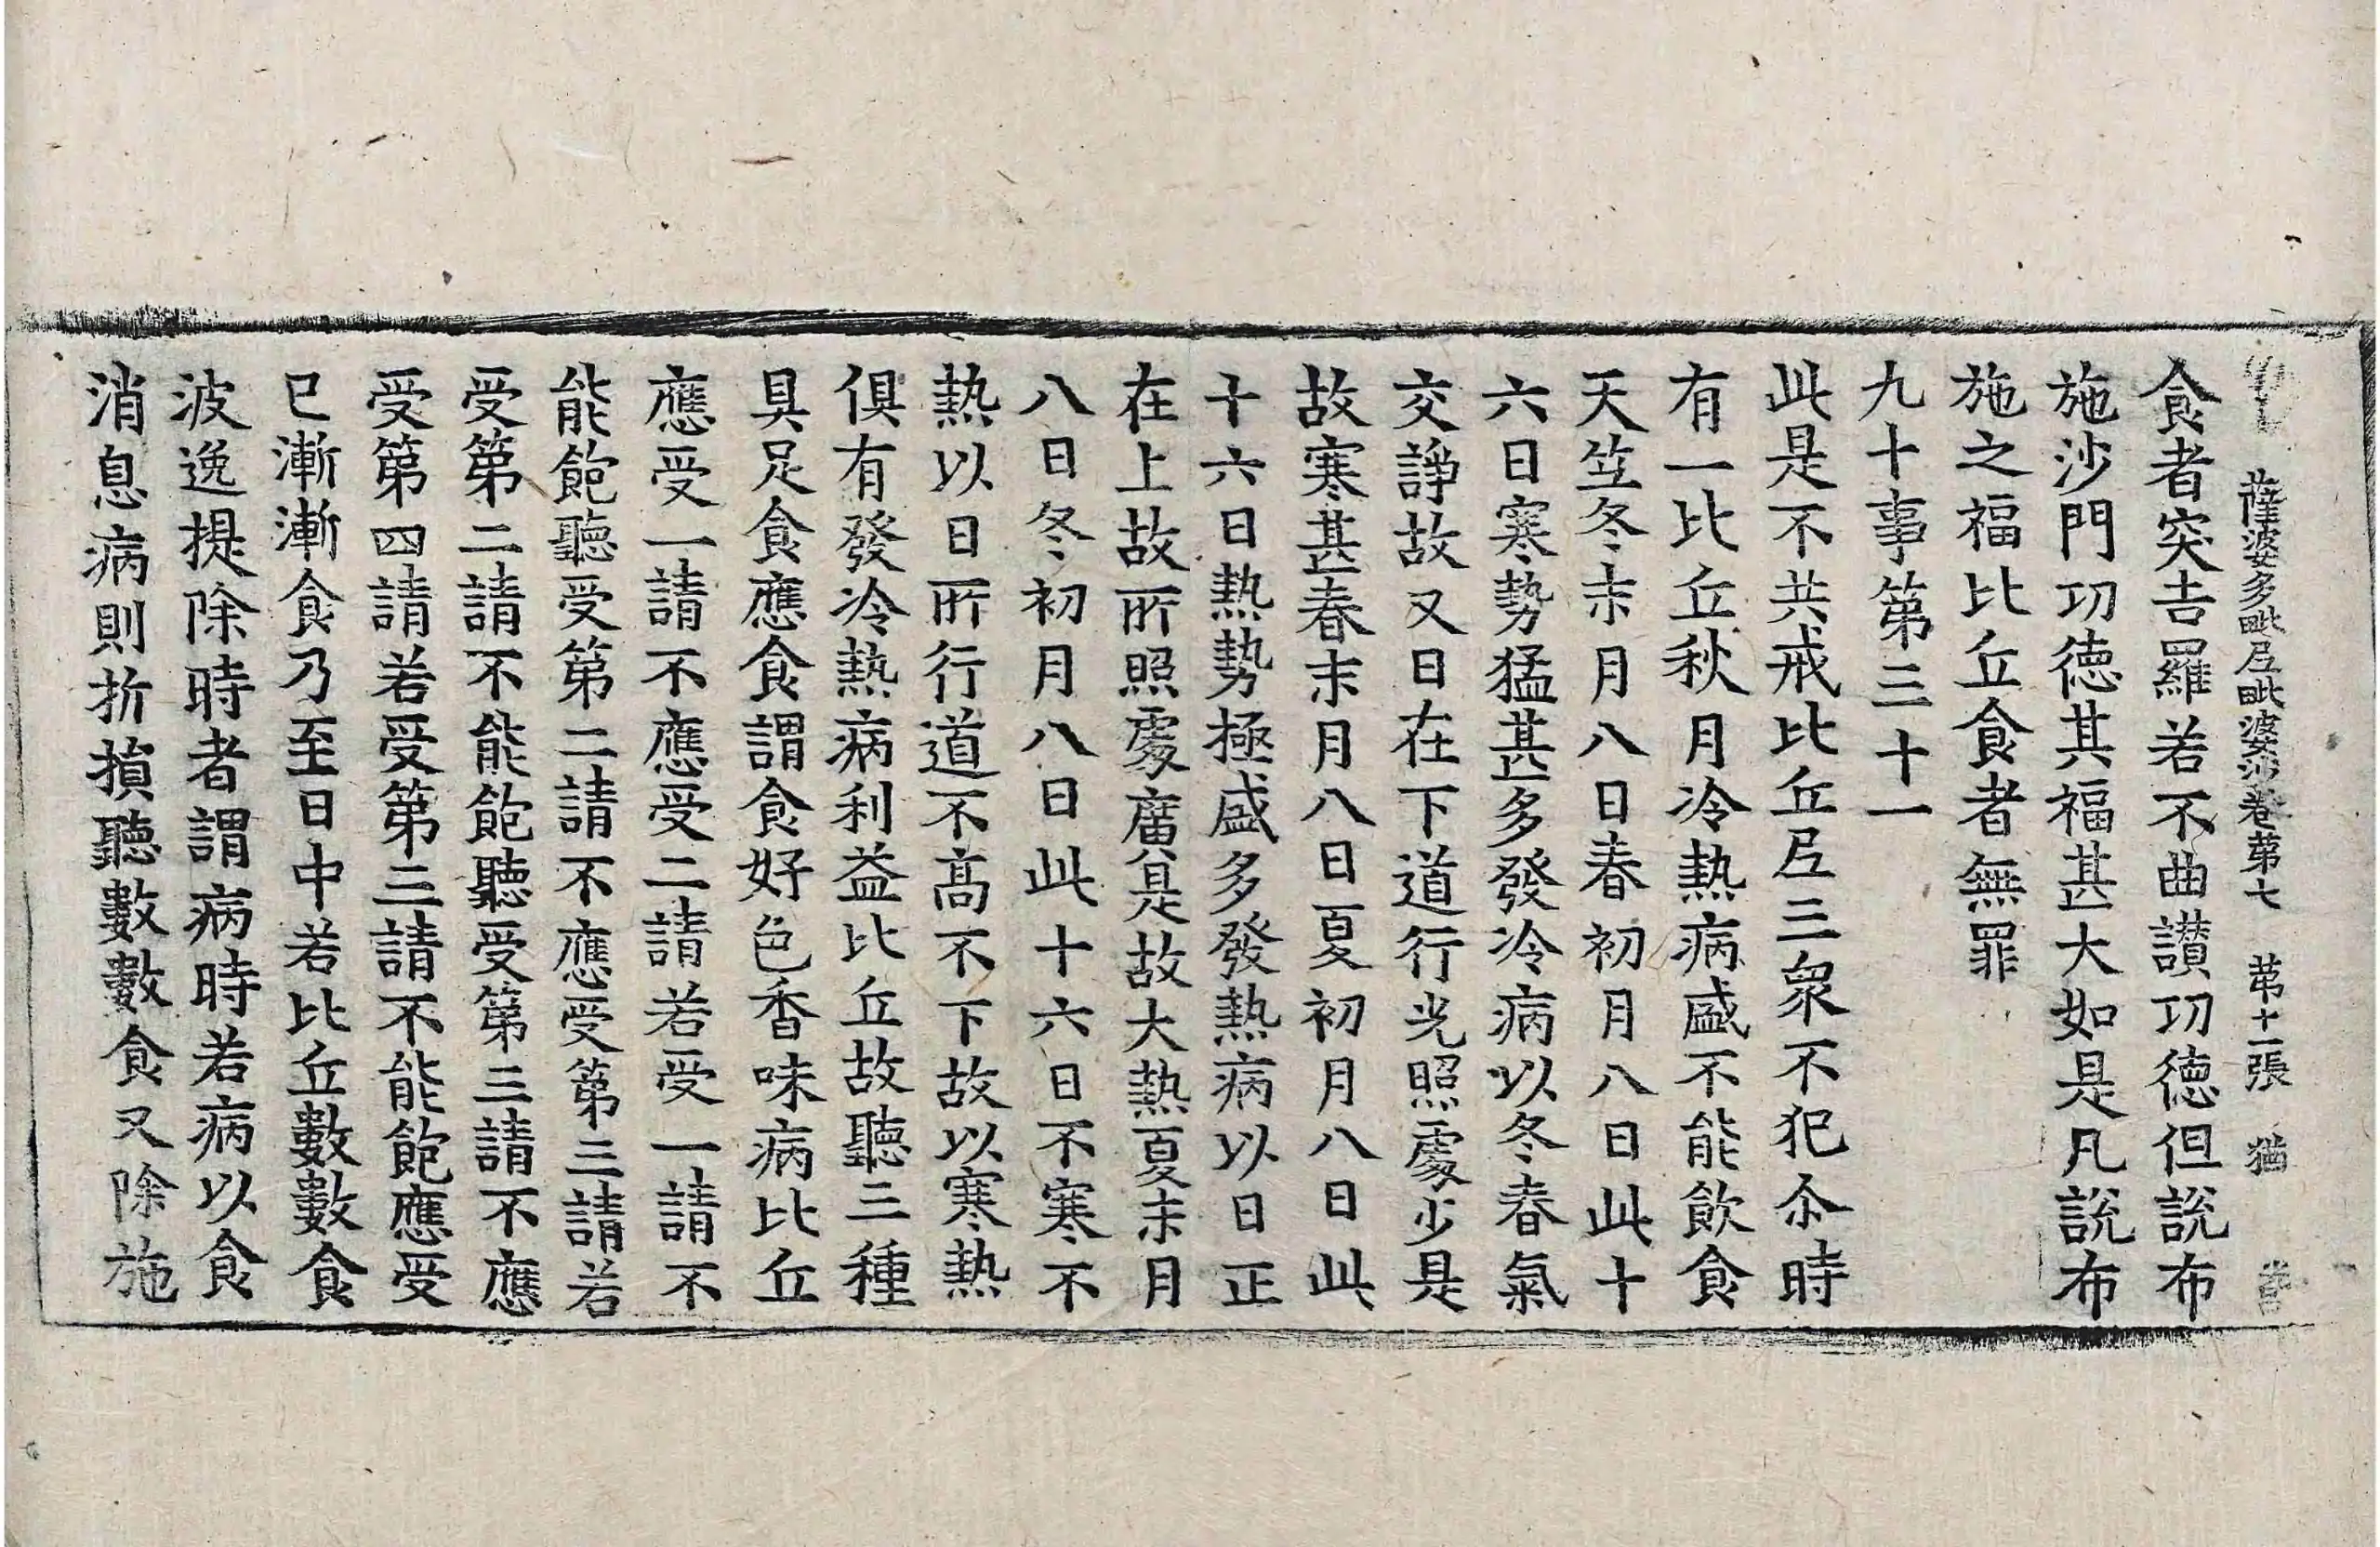 薩婆多毗尼毗婆沙卷苐七 苐十二張 猶
食者突吉羅若不曲讃功徳但說布
施沙門功徳其福甚大如是凡說布
施之福比丘食者無罪
九十事第三十一
此是不共戒比丘尼三衆不犯尒時
有一比丘秋月冷熱病盛不能飲食
天竺冬末月八日春初月八日此十
六日寒勢猛甚多發冷病以冬春氣
交諍故又日在下道行光照處少是
故寒甚春末月八日夏初月八日此
十六日熱勢極盛多發熱病以日正
在上故所照處廣是故大熱夏末月
八日冬初月八日此十六日不寒不
熱以日所行道不髙不下故以寒熱
俱有發冷熱病利益比丘故聽三種
具足食應食謂食好色香味病比丘
應受一請不應受二請若受一請不
能飽聽受第二請不應受第三請若
受第二請不能飽聽受第三請不應
受第四請若受第三請不能飽應受
已漸漸食乃至日中若比丘數數食
波逸提除時者謂病時若病以食
消息病則折損聽數數食又除施